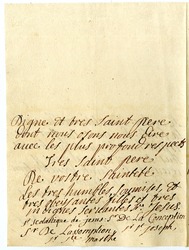 Digne et tres saint pere
dont nous osons nous dire
avec les plus profond respect
Tres saint pere
De vostre sainteté
Les tres humbles soumises et
tres obeissantes filles et tres
indignes servantes
sr de La Conception
sr De Lassomption
sr st joseph
sr marthe